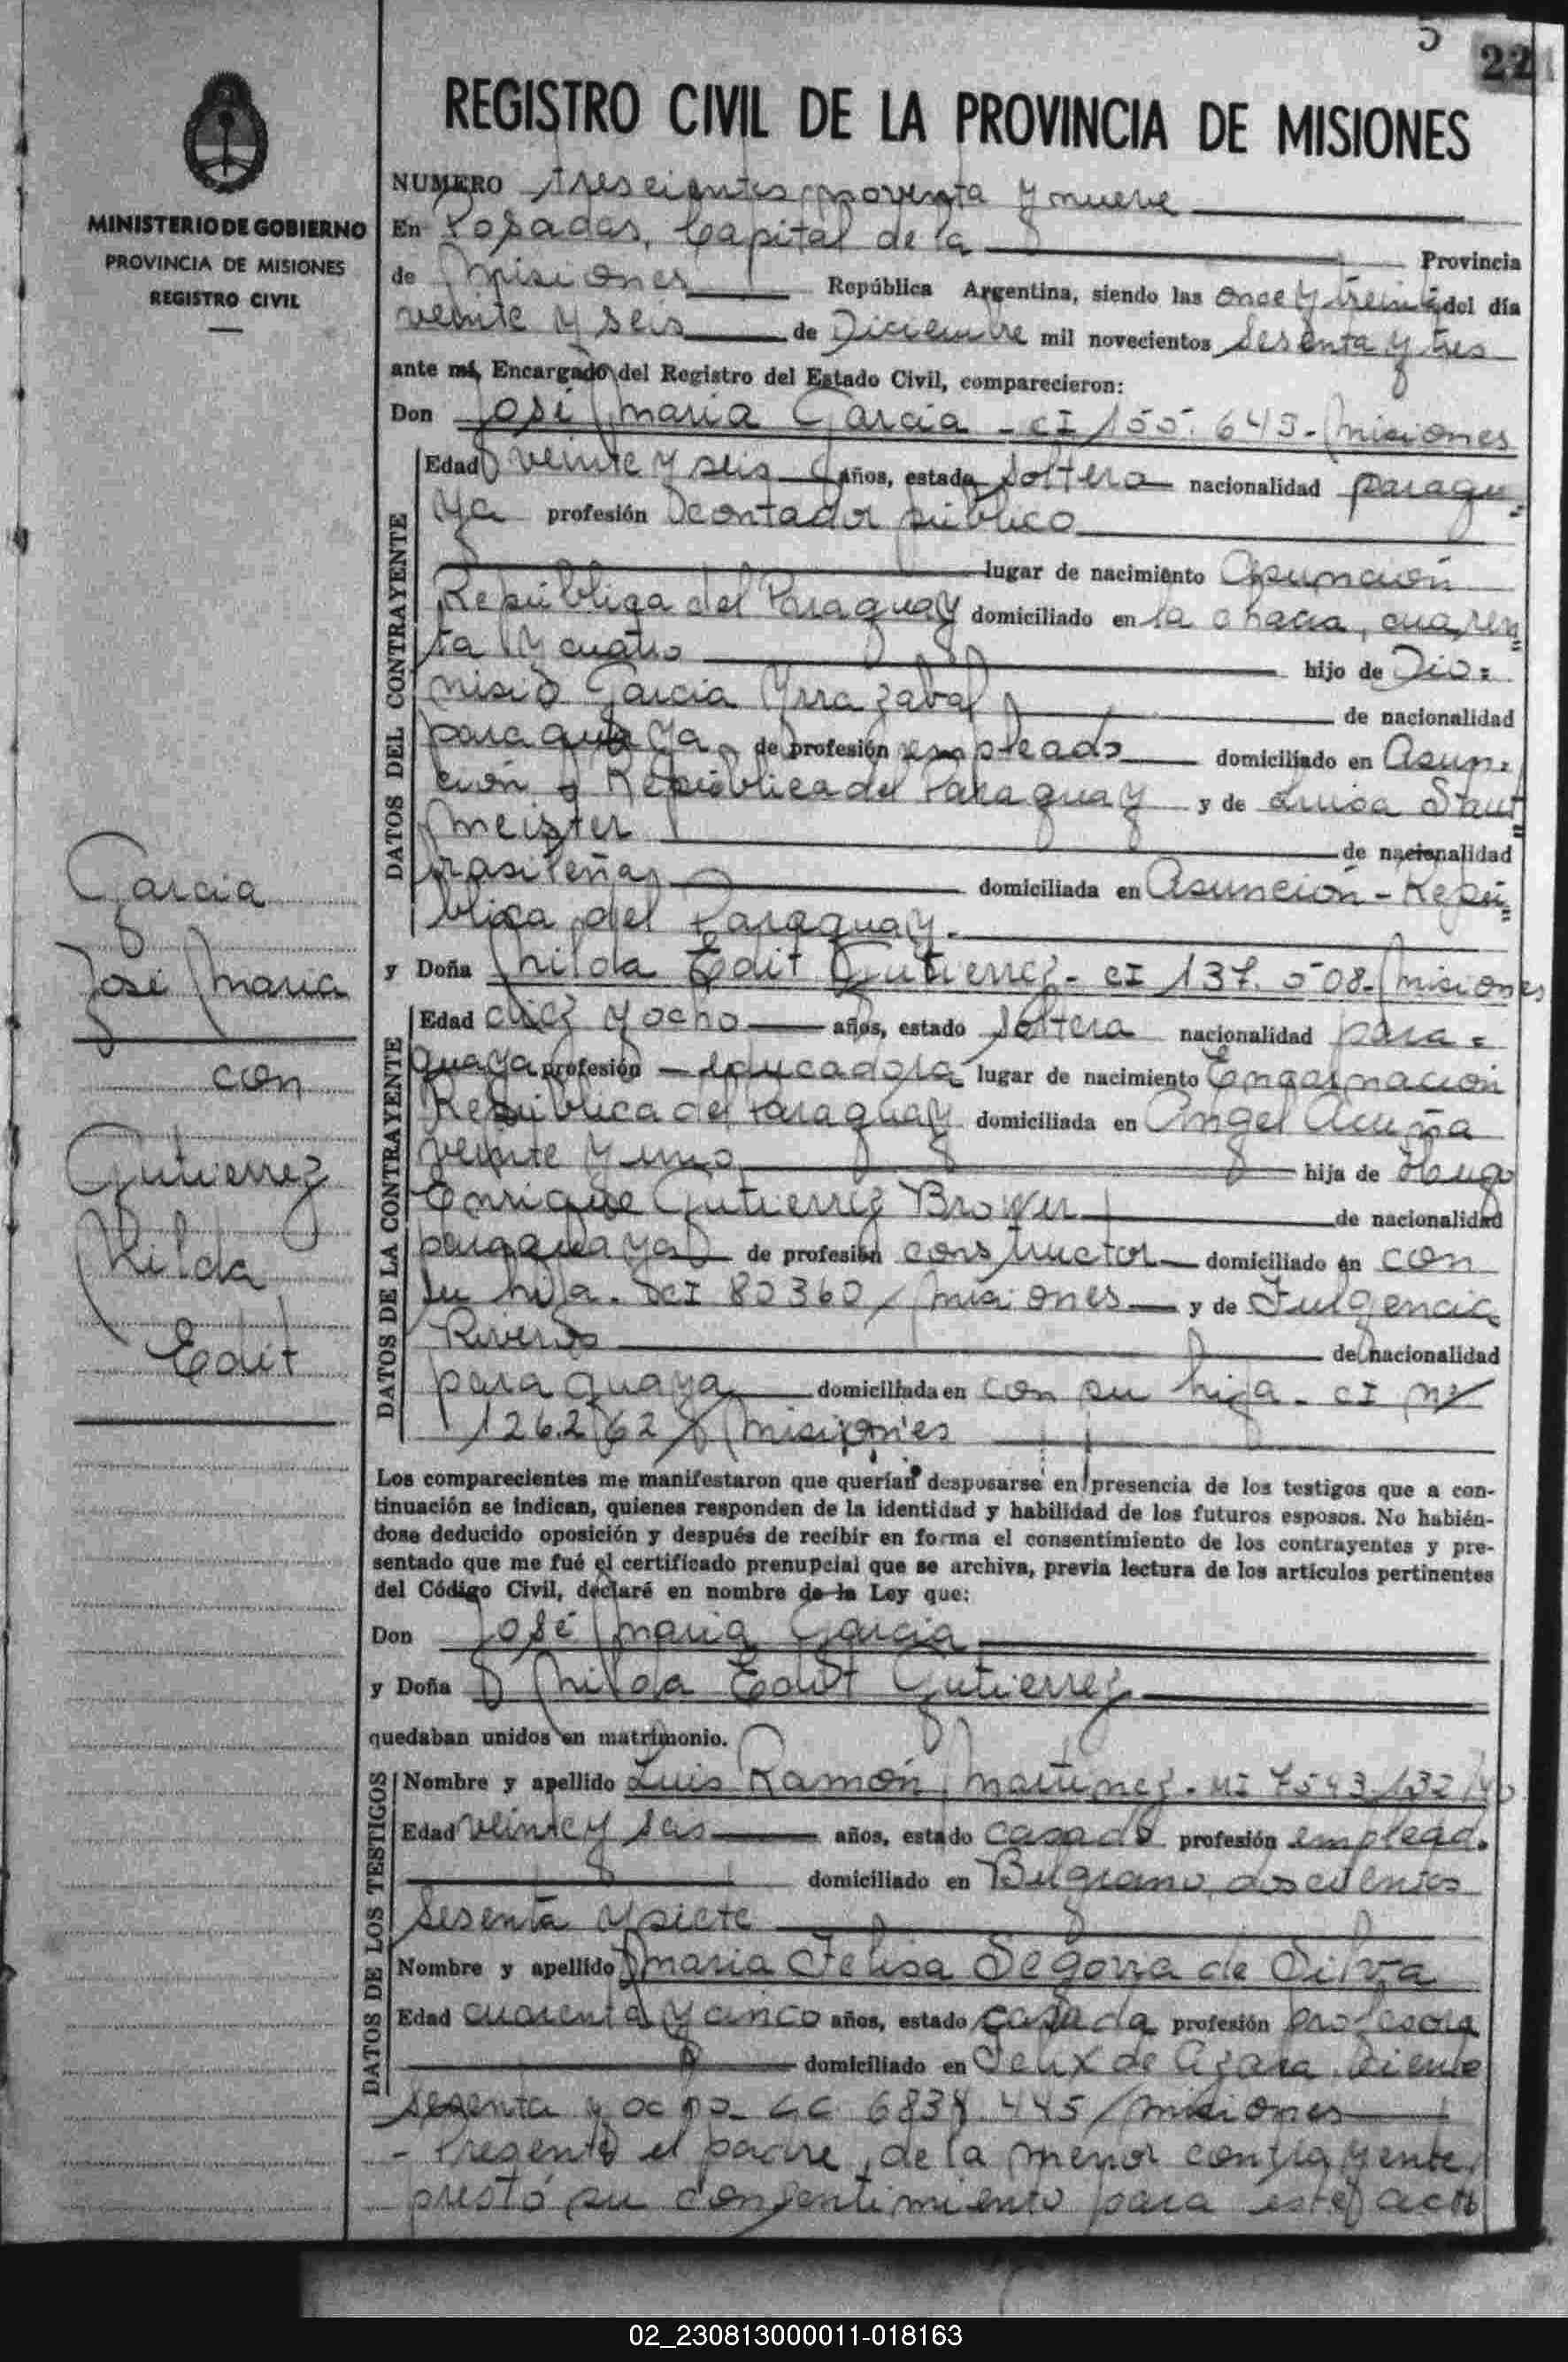 5 22
REGISTRO CIVIL DE LA PROVINCIA DE MISIONES
MINISTERIO DE GOBIERNO
PROVINCIA DE MISIONES
REGISTRO CIVIL
NUMERO trescientos noventa y nueve
En Posadas, Capital de la Provincia
de Misiones República Argentina, siendo las once y treinta del día
veinte y seis de Diciembre mil novecientos sesenta y tres
ante mí, Encargado del Registro del Estado Civil, comparecieron:
Don José Maria Garcia - CI 155.643 - Misiones
DATOS DEL CONTRAYENTE
Edad veinte y seis años, estado soltero nacionalidad paragu=
ya profesión contador público
lugar de nacimiento Asunción
República del Paraguay domiciliado en la chacra, cuaren=
ta y cuatro hijo de Dio=
nisio Garcia Yrrazabal de nacionalidad
paraguaya de profesión empleado domiciliado en Asun=
ción República del Paraguay y de Luisa Staut=
meister de nacionalidad
brasileña domiciliada en Asunción - Repú=
blica del Paraguay.
y Doña Nilda Edit Gutierrez - CI 137.508 - Misiones
DATOS DE LA CONTRAYENTE
Edad diez y ocho años, estado soltera nacionalidad para=
guaya profesión educadora lugar de nacimiento Encarnación
República del Paraguay domiciliada en Angel Acuña
veinte y uno hija de Hugo
Enrique Gutierrez Brower de nacionalidad
paraguaya de profesión constructor domiciliado en con
su hija. CI 80360/Misiones y de Fulgencia
Riveros de nacionalidad
paraguaya domiciliada en con su hija - CI Nº
126.262/Misiones
Los comparecientes me manifestaron que querían desposarse en presencia de los testigos que a con-
tinuación se indican, quienes responden de la identidad y habilidad de los futuros esposos. No habién-
dose deducido oposición y después de recibir en forma el consentimiento de los contrayentes y pre-
sentado que me fué el certificado prenupcial que se archiva, previa lectura de los artículos pertinentes
del Código Civil, declaré en nombre de la Ley que:
Don José Maria Garcia
y Doña Nilda Edit Gutierrez
quedaban unidos en matrimonio.
DATOS DE LOS TESTIGOS
Nombre y apellido Luis Ramón Martinez - MI 7543132
Edad veinte y seis años, estado casado profesión emplead.
domiciliado en Belgrano doscientos
sesenta y siete
Nombre y apellido Maria Felisa Segovia de Silva
Edad cuarenta y cinco años, estado casada profesión profesora
domiciliado en Felix de Azara ciento
sesenta y ocho 445/Misiones
- Presente el padre de la menor contrayente,
prestó su consentimiento para este acto
Garcia
José Maria
con
Gutierrez
Nilda
Edit
02_230813000011-018163